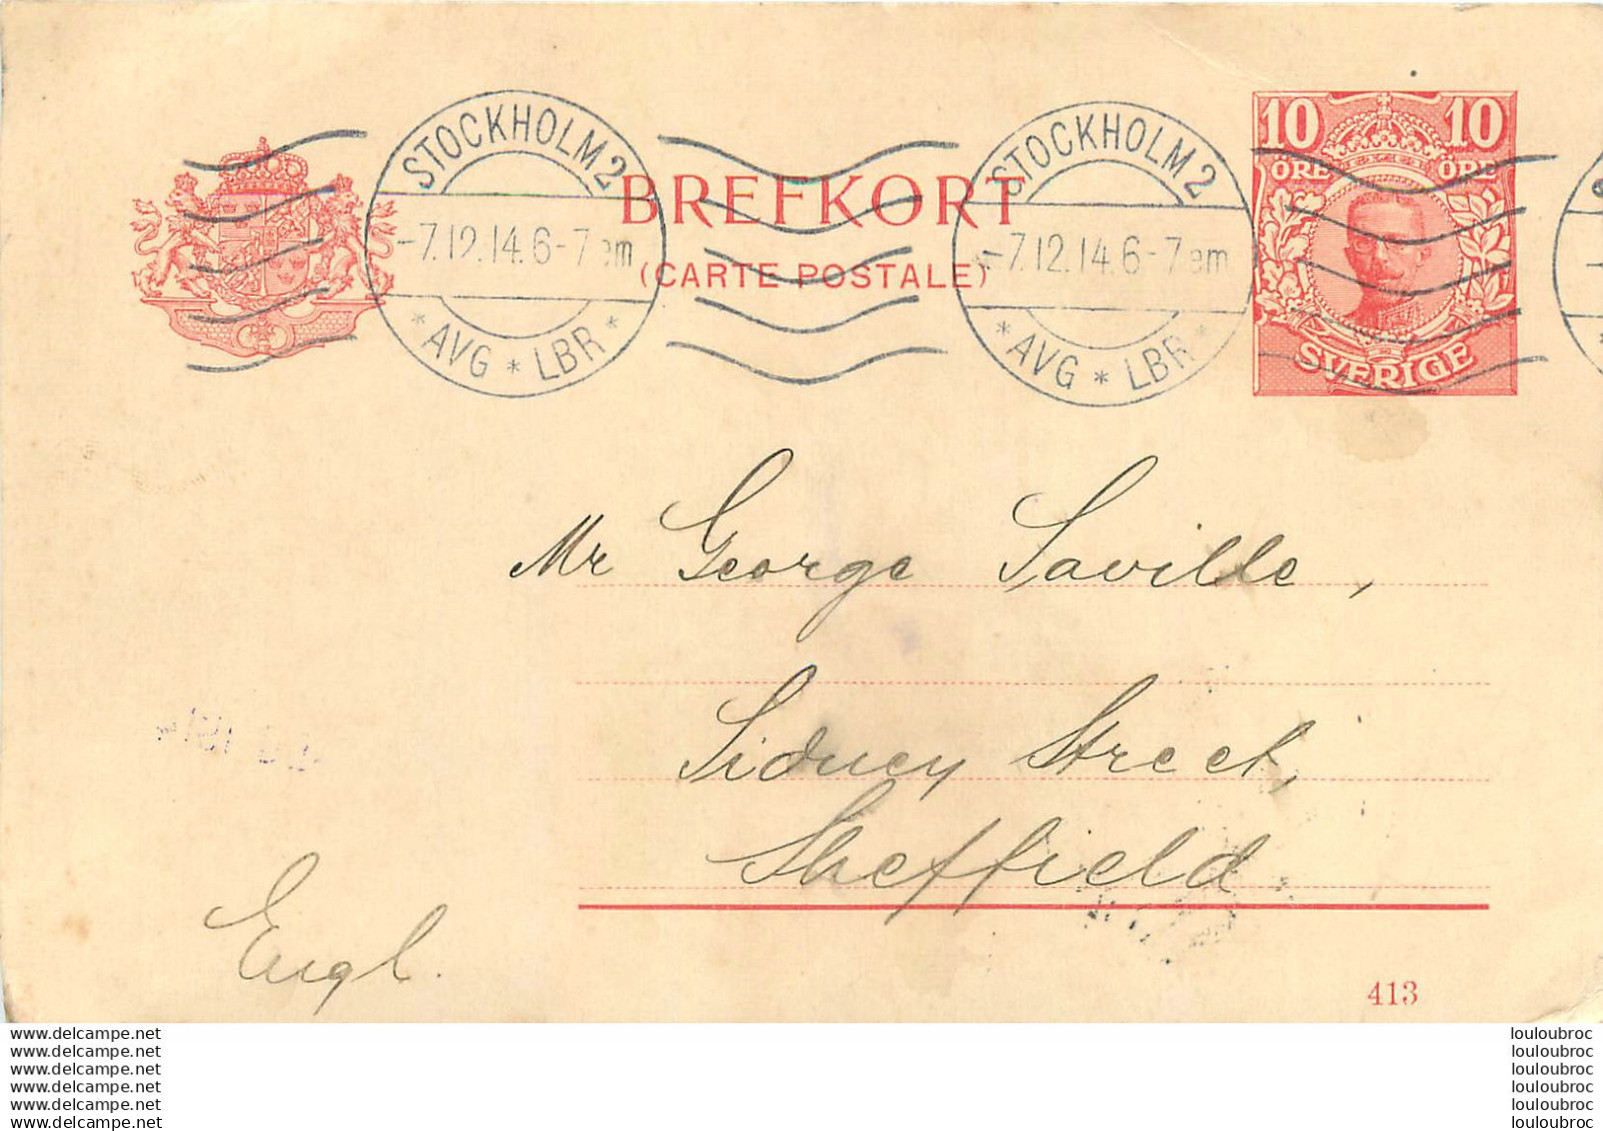 10 10
ÖRE ÖRE
SVERIGE
STOCKHOLM 2
-7.12.14.6-7 em
* AVG * LBR *
STOCKHOLM 2
-7.12.14.6-7 em
* AVG * LBR *
BREFKORT
(CARTE POSTALE)
Mr George Saville,
Sidney Street,
Sheffield
Engl.
413
www.delcampe.net louloubroc
www.delcampe.net louloubroc
www.delcampe.net louloubroc
www.delcampe.net louloubroc
www.delcampe.net louloubroc
www.delcampe.net louloubroc